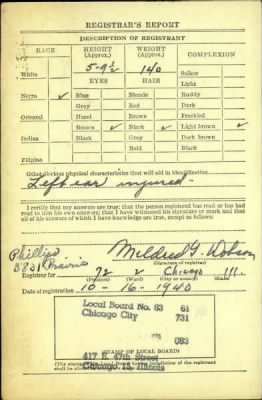 REGISTRAR'S REPORT
DESCRIPTION OF REGISTRANT
RACE HEIGHT (Approx.) WEIGHT (Approx.) COMPLEXION
5-9½ 140
White EYES HAIR Sallow
Light
Negro ✓ Blue Blonde Ruddy
Gray Red Dark
Oriental Hazel Brown Freckled
Brown ✓ Black ✓ Light brown ✓
Indian Black Gray Dark brown
Bald Black
Filipino
Other obvious physical characteristics that will aid in identification
Left ear injured
I certify that my answers are true; that the person registered has read or has had
read to him his own answers; that I have witnessed his signature or mark and that
all of his answers of which I have knowledge are true, except as follows:
Phillips
5831 Prairie
Mildred G. Dobson
(Signature of registrar)
Registrar for 92 2 Chicago Ill.
(Precinct) (Ward) (City or county) (State)
Date of registration 10-16-1940
Local Board No. 83 61
Chicago City 731
083
417 E. 47th Street
Chicago 15, Illinois
(STAMP OF LOCAL BOARD)
(The stamp of the Local Board having jurisdiction of the registrant